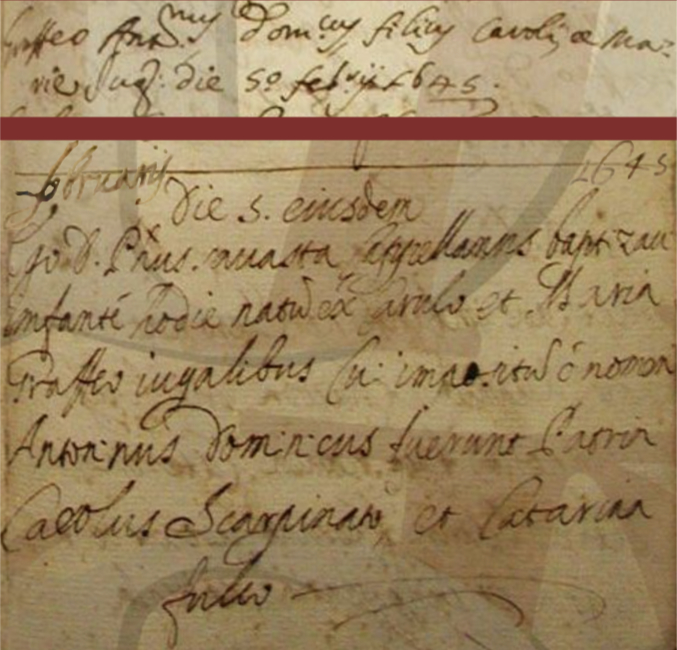 Graffeo Antnus Domcus filius Caroli et Ma:
rie Jug: die 5° febrij 1645.
februarij 1645
Die 5. eiusdem
Go D. Phus. Cappellanus baptizaui
infante hodie natu ex Carulo et Maria
Graffeo iugalibus Cui impositu é nomen
Antoninus Dominicus fuerunt Patrin
Carolus Scarpinato et Catarina